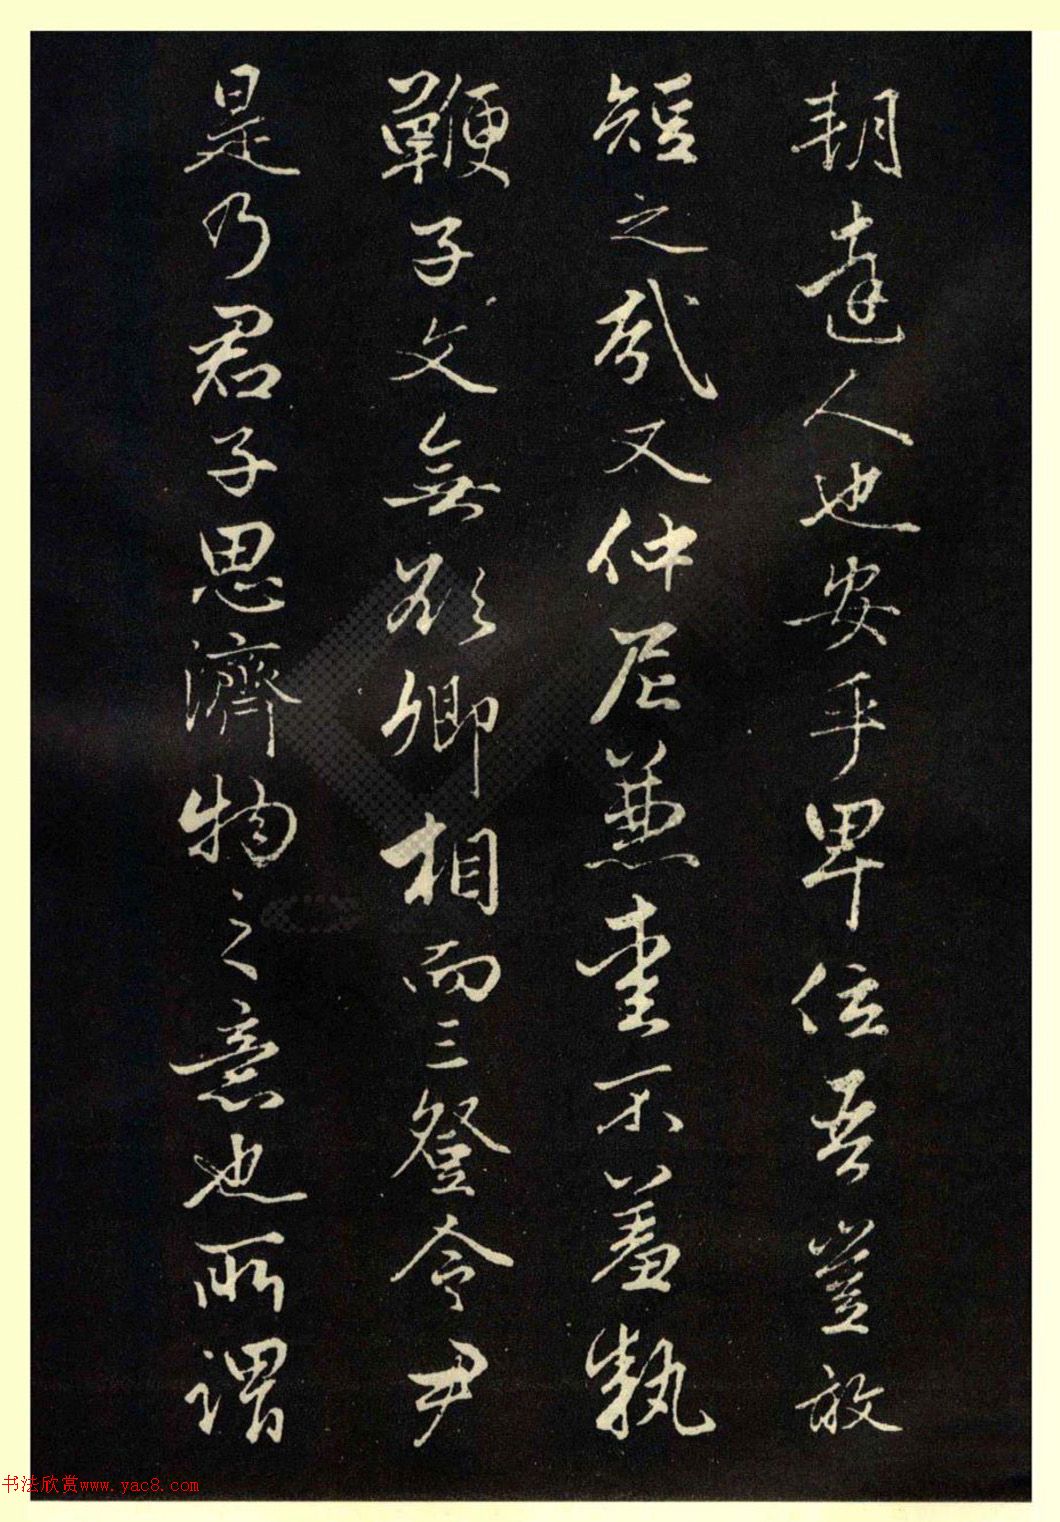 朝達人也安乎卑位吾豈敢
短之哉又仲尼兼愛不羞執
鞭子文無欲卿相而三登令尹
是乃君子思濟物之意也所謂
书法欣赏www.yac8.com